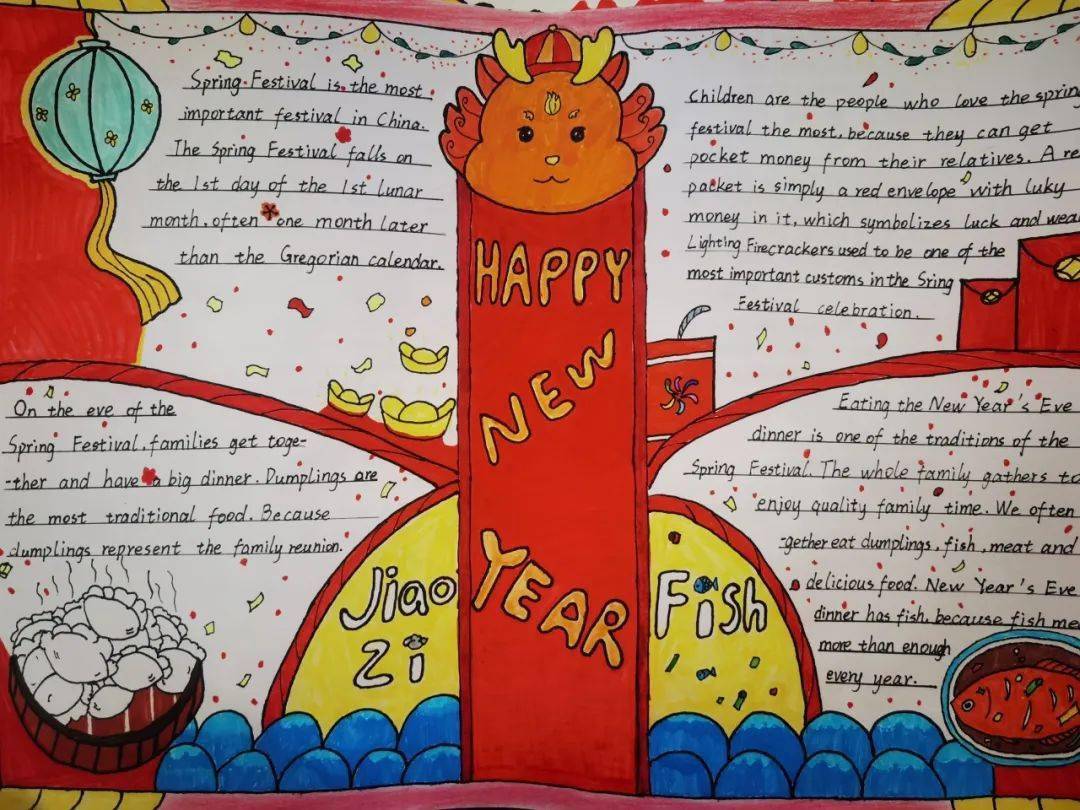 Spring Festival is the most
important festival in China.
The Spring Festival falls on
the 1st day of the 1st lunar
month, often one month later
than the Gregorian calendar.
Children are the people who love the spring
festival the most, because they can get
pocket money from their relatives. A re
packet is simply a red envelope with luky
money in it, which symbolizes luck and wea
Lighting Firecrackers used to be one of the
most important customs in the Sring
Festival celebration.
HAPPY
NEW
YEAR
On the eve of the
Spring Festival, families get toge-
-ther and have a big dinner. Dumplings are
the most traditional food. Because
dumplings represent the family reunion.
Jiao
Zi
Eating the New Year's Eve
dinner is one of the traditions of the
Spring Festival. The whole family gathers to
enjoy quality family time. We often
-gether eat dumplings, fish, meat and
delicious food. New Year's Eve
dinner has fish, because fish me
more than enough
every year.
Fish